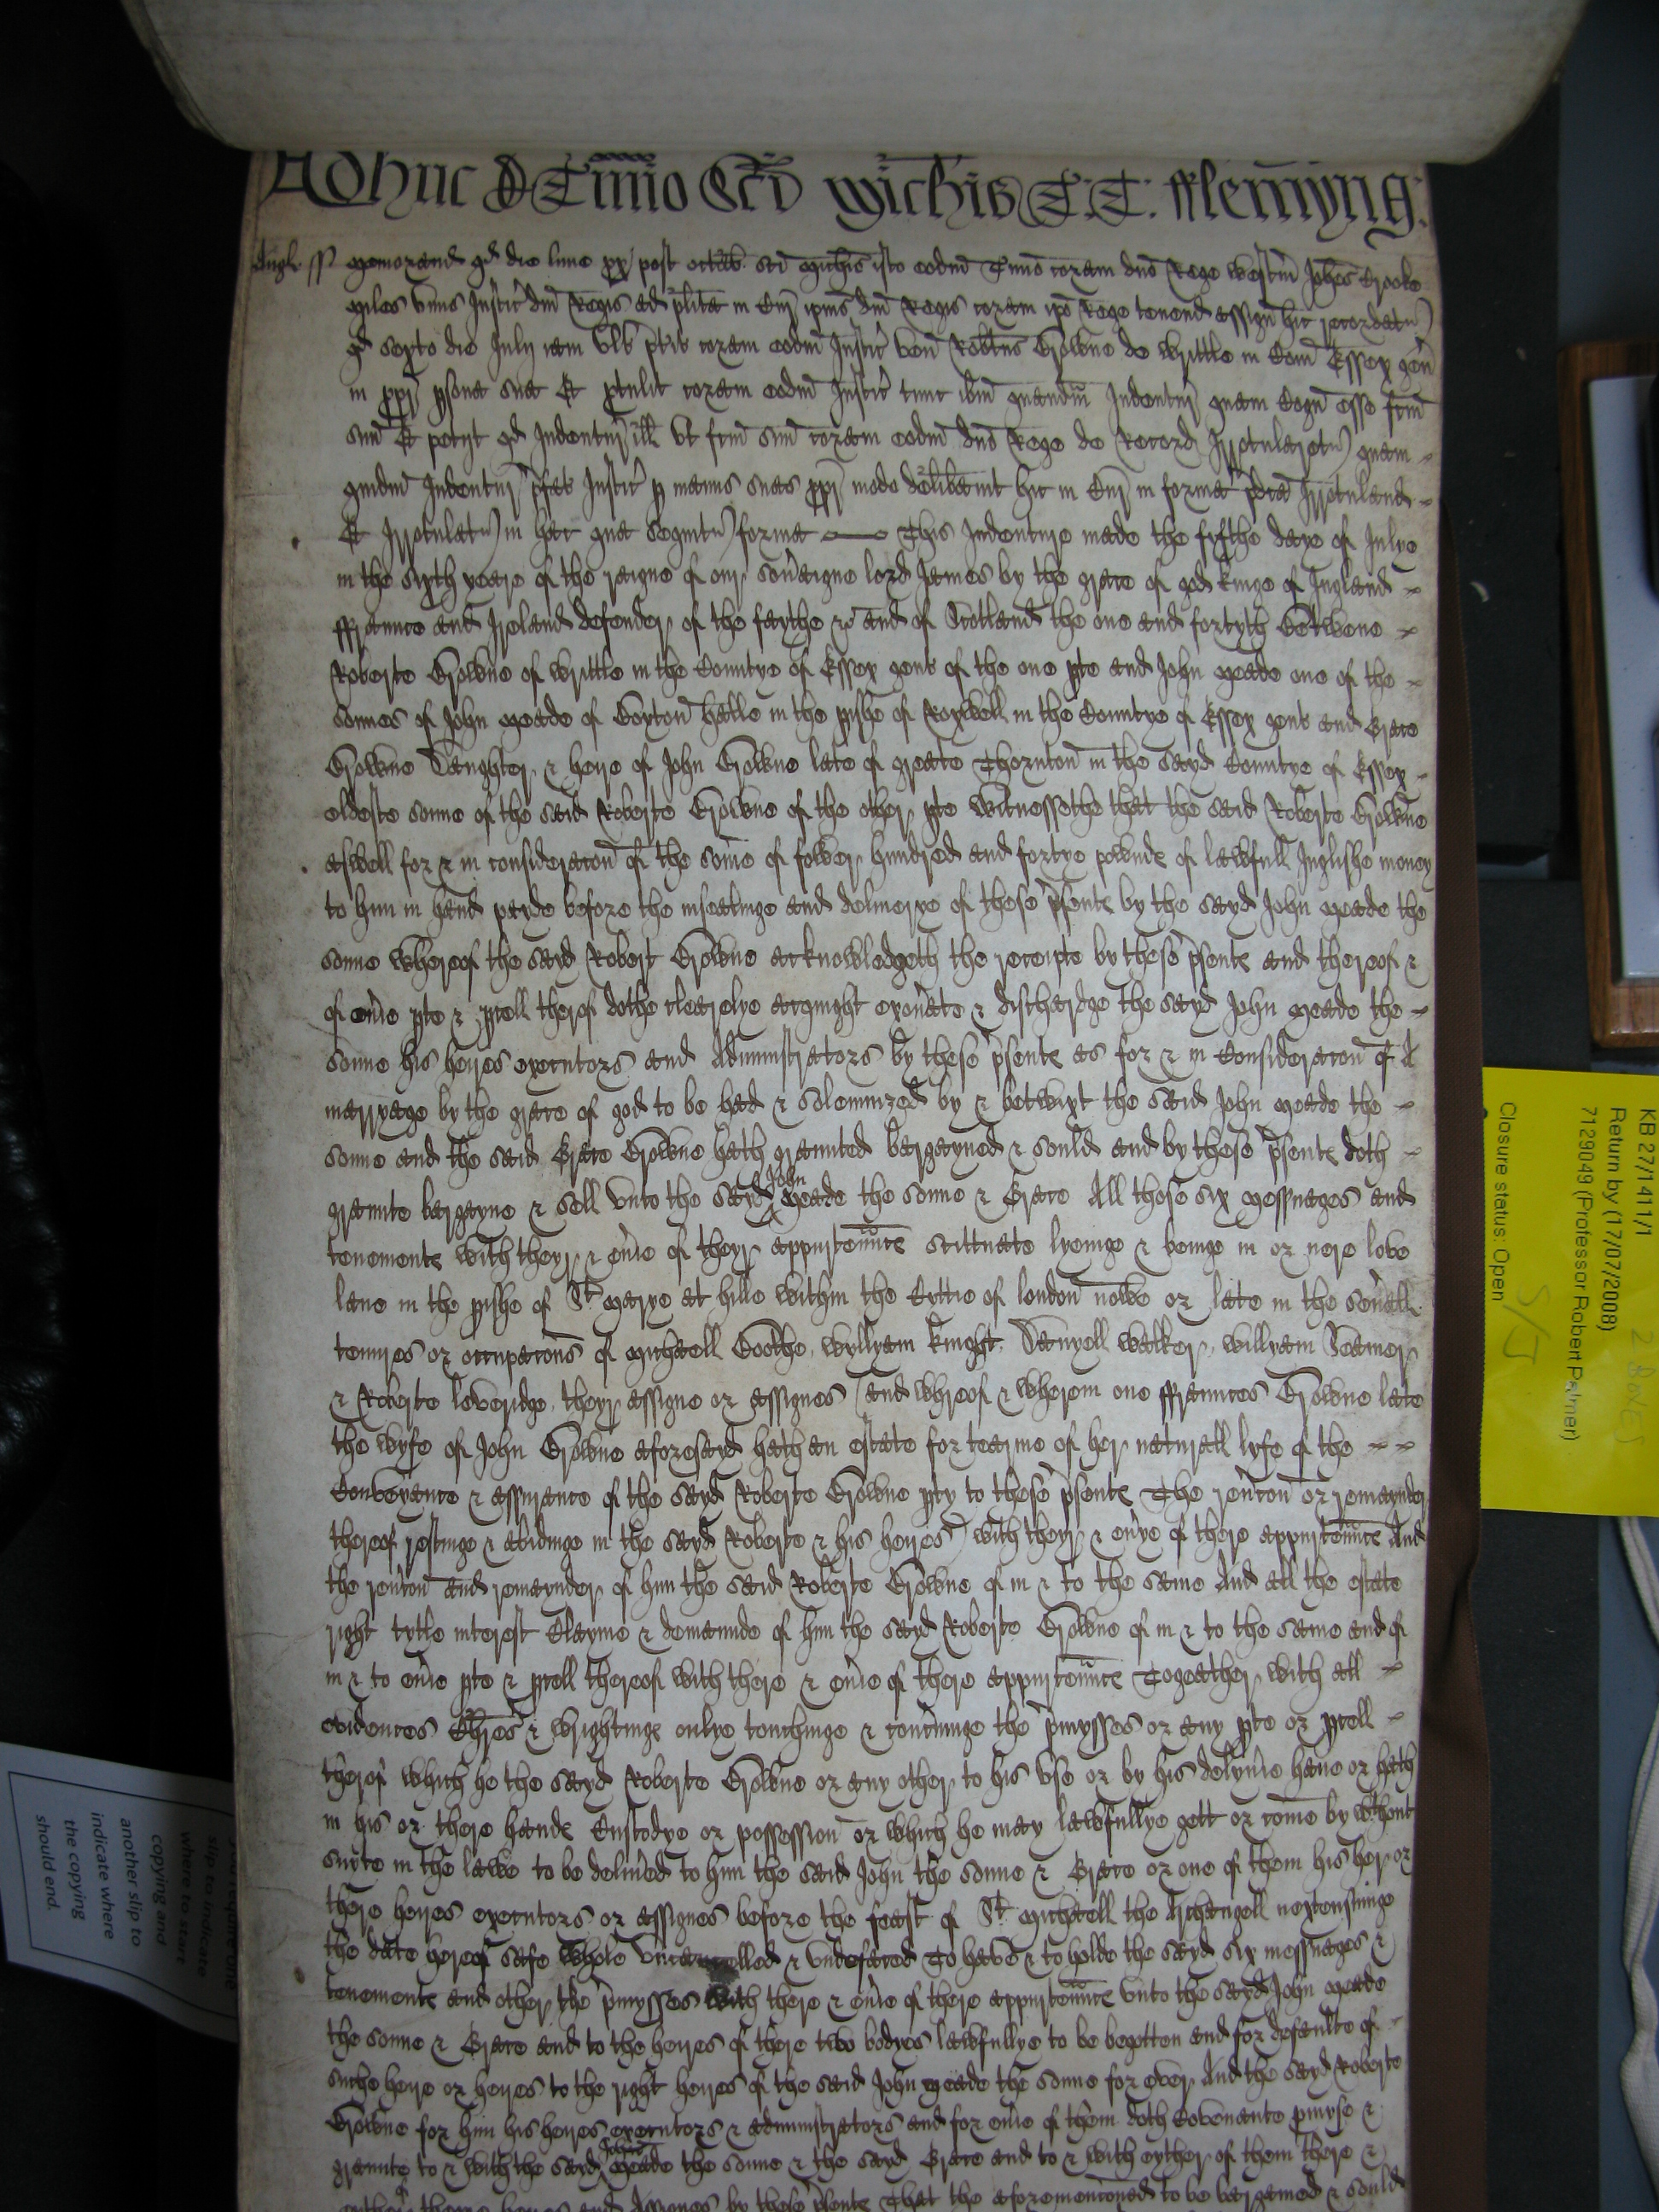 Adhuc de Termio Sci Michis T: T: fflemyng
Angl ss Memorand qd die lune px post octab sci Michis isto eodm Tmio coram dno Rege Westm Johes Crooke
miles unus Justic dni Regis ad plita in Cur ipius dni Regis coram ipo Rege tenend assign hic recordatr
qd sexto die Julij iam ult ptit coram eodm Justic ven Robtus Browne de writtle in Com Essex gen
in ppr psona sua Et ptulit coram eodm Justic tunc ibm quandm Indentur quam Cogn esse fcm
suu Et petijt qd Indentur ill ut fcm suu coram eodm dno Rege de Record Irrotularetr quam
quidm Indentur pfat Justic p manus suas ppr modo delibavit hic in Cur in forma pdca Irrotuland
Et Irrotulatr in hac qua sequitr forma This Indenture made the fyfthe daye of Julye
in the sixth yeare of the raigne of our sovaigne lord James by the grace of god kinge of Ingland
ffraunce and Ireland defender of the faythe &c and of Scotland the one and fortyth Betwene
Roberte Browne of writtle in the Countye of Essex gent of the one pte and John Meade one of the
sonnes of John Meade of Boyton halle in the pishe of Roxwell in the Countye of Essex gent and Grace
Browne Daughter & heire of John Browne late of greate Thornton in the sayd Countye of Essex
eldeste sonne of the said Roberte Browne of the other pte witnessethe that the said Roberte Browne
aswell for & in consideracon of the some of fower hundred and fortye pownde of lawfull Inglishe money
to him in hand payde before the inseatinge and deliverye of these psente by the sayd John Meade the
sonne whereof the sayd Robert Browne acknowledgeth the receipte by these psente and thereof &
of evie pte & pcell therof dothe clearelye acquight exonate & dischardge the sayd John Meade the
sonne his heyres executors and Administrators by these psente as for & in Consideracon of A
marryage by the grace of god to be had & solemnized by & betwixt the said John Meade the
sonne and the said Grace Browne hath graunted bargayned & sould and by these psente doth
graunte bargayne & sell unto the sayd John Meade the sonne & Grace All those six Messuages and
tenemente with theyr & evie of theyr appurtenance scittuate lyeinge & beinge in or nere love
lane in the pishe of St Marye at hille within the Cyttie of london nowe or late in the sevall
tenures or occupacons of Michaell Boothe, Wyllyam knight, Danyell walker, willyam Seamer
& Roberte loveridge, theyr assigne or assignes (and whreof & wherein one ffraunces Browne late
the wyfe of John Browne aforesayd hath an estate for tearme of her naturall lyfe of the
Conveyance & assurance of the sayd Roberte Browne pty to these psente The revcon or remaynder
thereof restinge & abidinge in the sayd Roberte & his heyres) with theyr & evye of there appurtenance And
the revcon and remaynder of him the said Roberte Browne of in & to the same And all the estate
right tytle interest Clayme & demaunde of him the sayd Roberte Browne of in & to the same and of
in & to evie pte & pcell thereof with there & evie of there appurtenance Togeather with all
evidences Chres & wrightinge onlye touchinge & concninge the pmysses or any pte or pcell
therof which he the sayd Roberte Browne or any other to his use or by his delyvie have or hath
in his or there hande Custodye or possession or which he may lawfullye gett or come by without
suyte in the lawe to be delived to him the said John the sonne & Grace or one of them his her or
there heyres executors or assignes before the feast of St Michaell the Archangell nextensuinge
the date hereof safe whole uncancelled & undefaced To have & to holde the sayd six messuages &
tenemente and other the pmysses with there & evie of there appurtenance unto the sayd John Meade
the sonne & Grace and to the heyres of there two bodyes lawfullye to be begotten and for defaulte of
suche heire or heyres to the right heyres of the said John Meade the sonne for ever And the sayd Roberte
Browne for him his heyres executors & administrators and for evie of them doth Covenante pmyse &
graunte to & with the sayd John Meade the sonne & the sayd Grace and to & with eyther of them there &
heyres and Assignes by these psente That the aforemenconed to be bargained & sould
KB 27/1411/1
Return by (17/07/2008)
7129049 (Professor Robert Palmer)
Closure status: Open
2 BOXES
S/J
slip to indicate
where to start
copying and
another slip to
indicate where
the copying
should end.